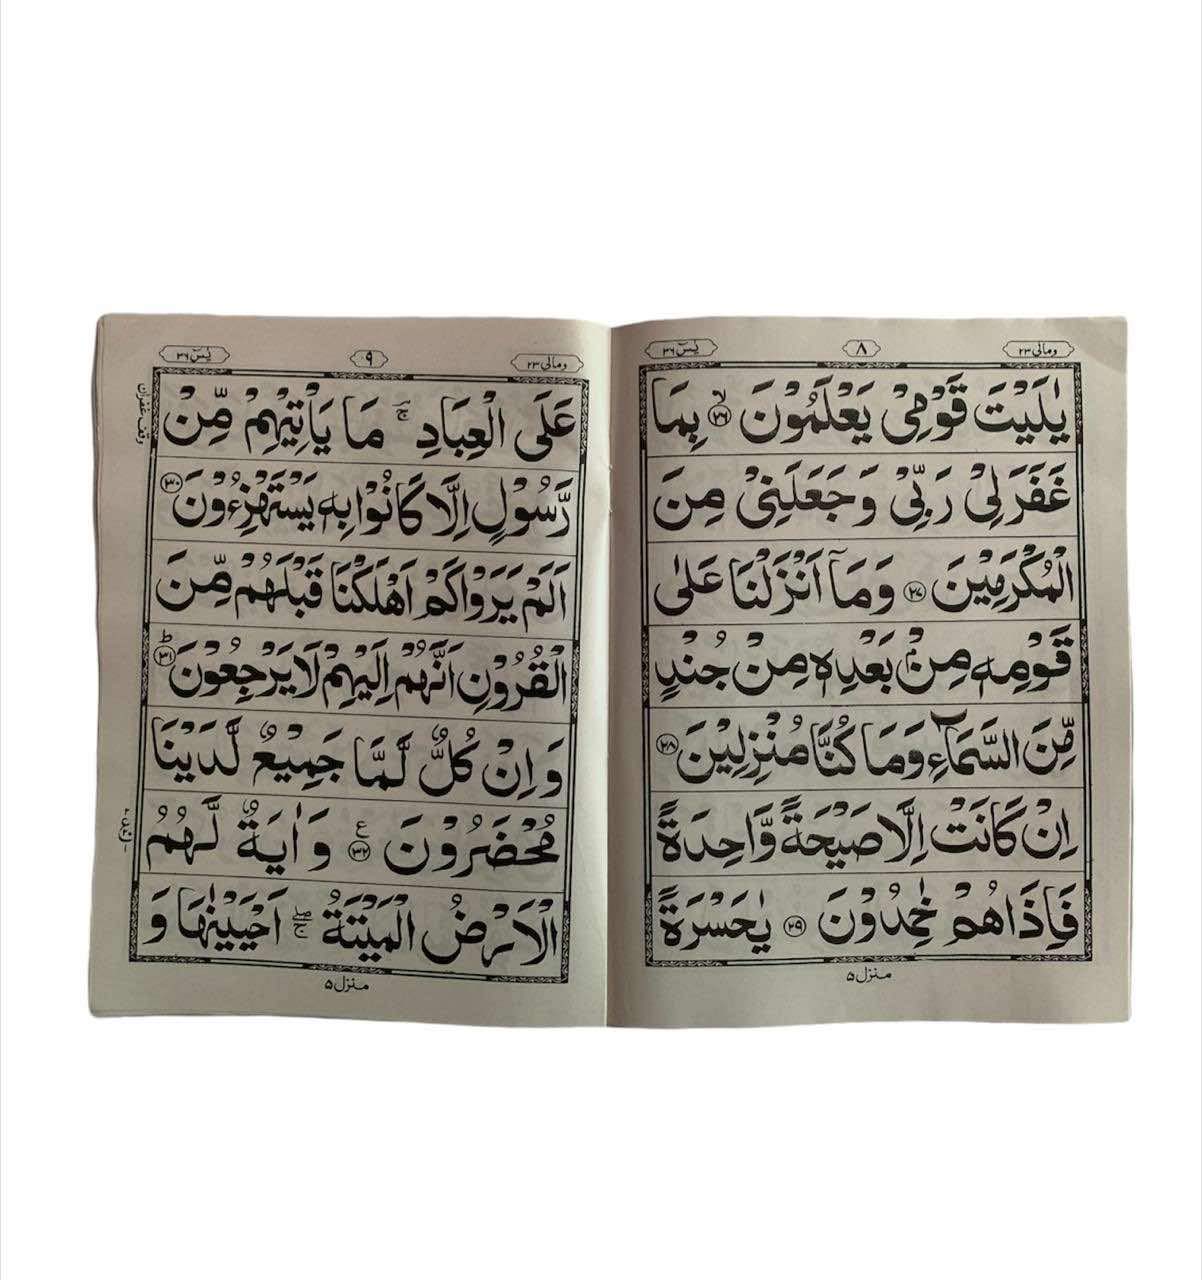 ومالی ٢٣
٨
یٰسٓ ٣٦
یٰلَیْتَ قَوْمِیْ یَعْلَمُوْنَ ۙ‏﴿٢٦﴾ بِمَا
غَفَرَ لِیْ رَبِّیْ وَ جَعَلَنِیْ مِنَ
الْمُكْرَمِیْنَ ﴿٢٧﴾ وَ مَاۤ اَنْزَلْنَا عَلٰی
قَوْمِهٖ مِنْۢ بَعْدِهٖ مِنْ جُنْدٍ
مِّنَ السَّمَآءِ وَ مَا كُنَّا مُنْزِلِیْنَ ﴿٢٨﴾
اِنْ كَانَتْ اِلَّا صَیْحَةً وَّاحِدَةً
فَاِذَا هُمْ خٰمِدُوْنَ ﴿٢٩﴾ یٰحَسْرَةً
منزل ۵
ومالی ٢٣
٩
یٰسٓ ٣٦
عَلَی الْعِبَادِ ۚ مَا یَاْتِیْهِمْ مِّنْ
رَّسُوْلٍ اِلَّا كَانُوْا بِهٖ یَسْتَهْزِءُوْنَ ﴿٣٠﴾
اَلَمْ یَرَوْا كَمْ اَهْلَكْنَا قَبْلَهُمْ مِّنَ
الْقُرُوْنِ اَنَّهُمْ اِلَیْهِمْ لَا یَرْجِعُوْنَ ؕ﴿٣١﴾
وَ اِنْ كُلٌّ لَّمَّا جَمِیْعٌ لَّدَیْنَا
مُحْضَرُوْنَ ﴿٣٢﴾ ع وَ اٰیَةٌ لَّهُمُ
الْاَرْضُ الْمَیْتَةُ ۚۖ اَحْیَیْنٰهَا وَ
منزل ۵
وقف غفران